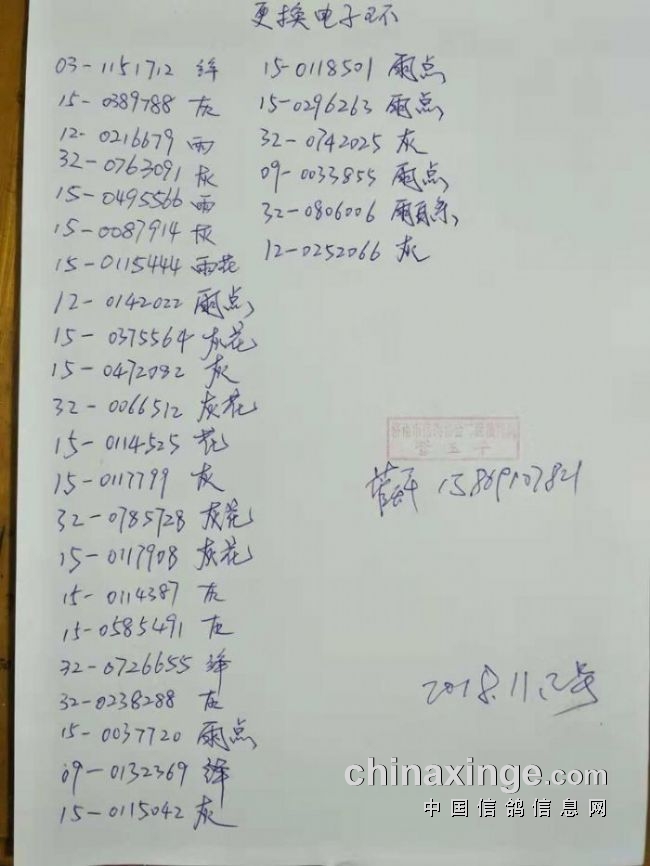 更换电子环
03-1151712 绛
15-0389788 灰
12-0216679 雨
32-0763091 灰
15-0495566 雨
15-0087914 灰
15-0115444 雨花
12-0142022 雨点
15-0375564 灰花
15-0472082 灰
32-0066512 灰花
15-0114525 花
15-0117799 灰
32-0785728 灰花
15-0117908 灰花
15-0114387 灰
15-0585491 灰
32-0726655 绛
32-0238288 灰
15-0037720 雨点
09-0132369 绛
15-0115042 灰
15-0118501 雨点
15-0296263 雨点
32-0742025 灰
09-0033855 雨点
32-0806006 雨
12-0252066 灰
2018.11.2号
chinaxinge.com
中国信鸽信息网